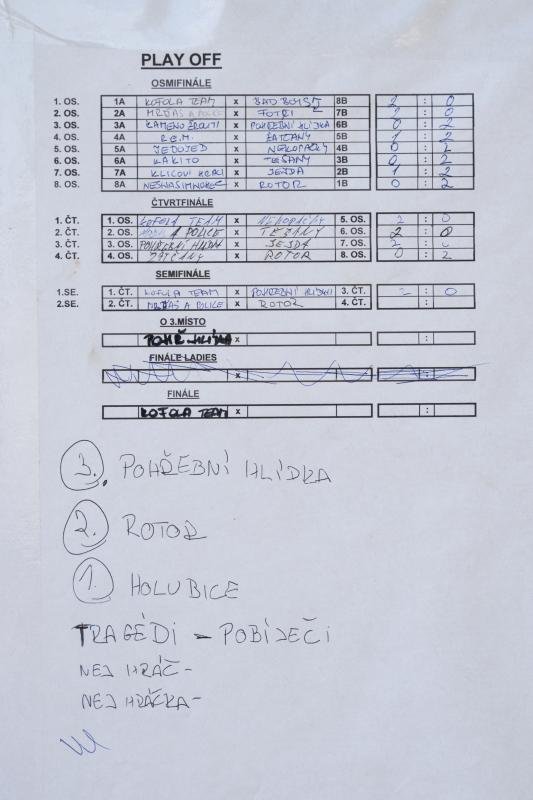 PLAY OFF
OSMIFINÁLE
1. OS. 1A KOFOLA TEAM x BAD BOYS 8B 2 : 0
2. OS. 2A MRĎAS A POLICE x FOTŘI 7B 2 : 0
3. OS. 3A KAMENOŽROUTI x POHŘEBNÍ HLÍDKA 6B 0 : 2
4. OS. 4A R.E.M. x ŽATČANY 5B 1 : 2
5. OS. 5A JEDUJED x NEKOPAČKY 4B 0 : 2
6. OS. 6A KAKITO x TEŠANY 3B 0 : 2
7. OS. 7A KLICOVI x JEJDA 2B 1 : 2
8. OS. 8A x ROTOR 1B 0 : 2
ČTVRTFINÁLE
1. ČT. 1. OS. KOFOLA TEAM x NEKOPAČKY 5. OS. 2 : 0
2. ČT. 2. OS. A POLICE x TEŠANY 6. OS. 2 : 0
3. ČT. 3. OS. POHŘEBNÍ HLÍDKA x JEJDA 7. OS. 2 : 0
4. ČT. 4. OS. ŽATČANY x ROTOR 8. OS. 0 : 2
SEMIFINÁLE
1.SE. 1. ČT. KOFOLA TEAM x POHŘEBNÍ HLÍDKA 3. ČT. 2 : 0
2.SE. 2. ČT. MRĎAS A POLICE x ROTOR 4. ČT. :
O 3.MÍSTO
POHŘ. HLÍDKA x :
FINÁLE LADIES
x :
FINÁLE
KOFOLA TEAM x :
3. POHŘEBNÍ HLÍDKA
2. ROTOR
1. HOLUBICE
TRAGÉDI – POBÍJEČI
NEJ HRÁČ –
NEJ HRÁČKA –